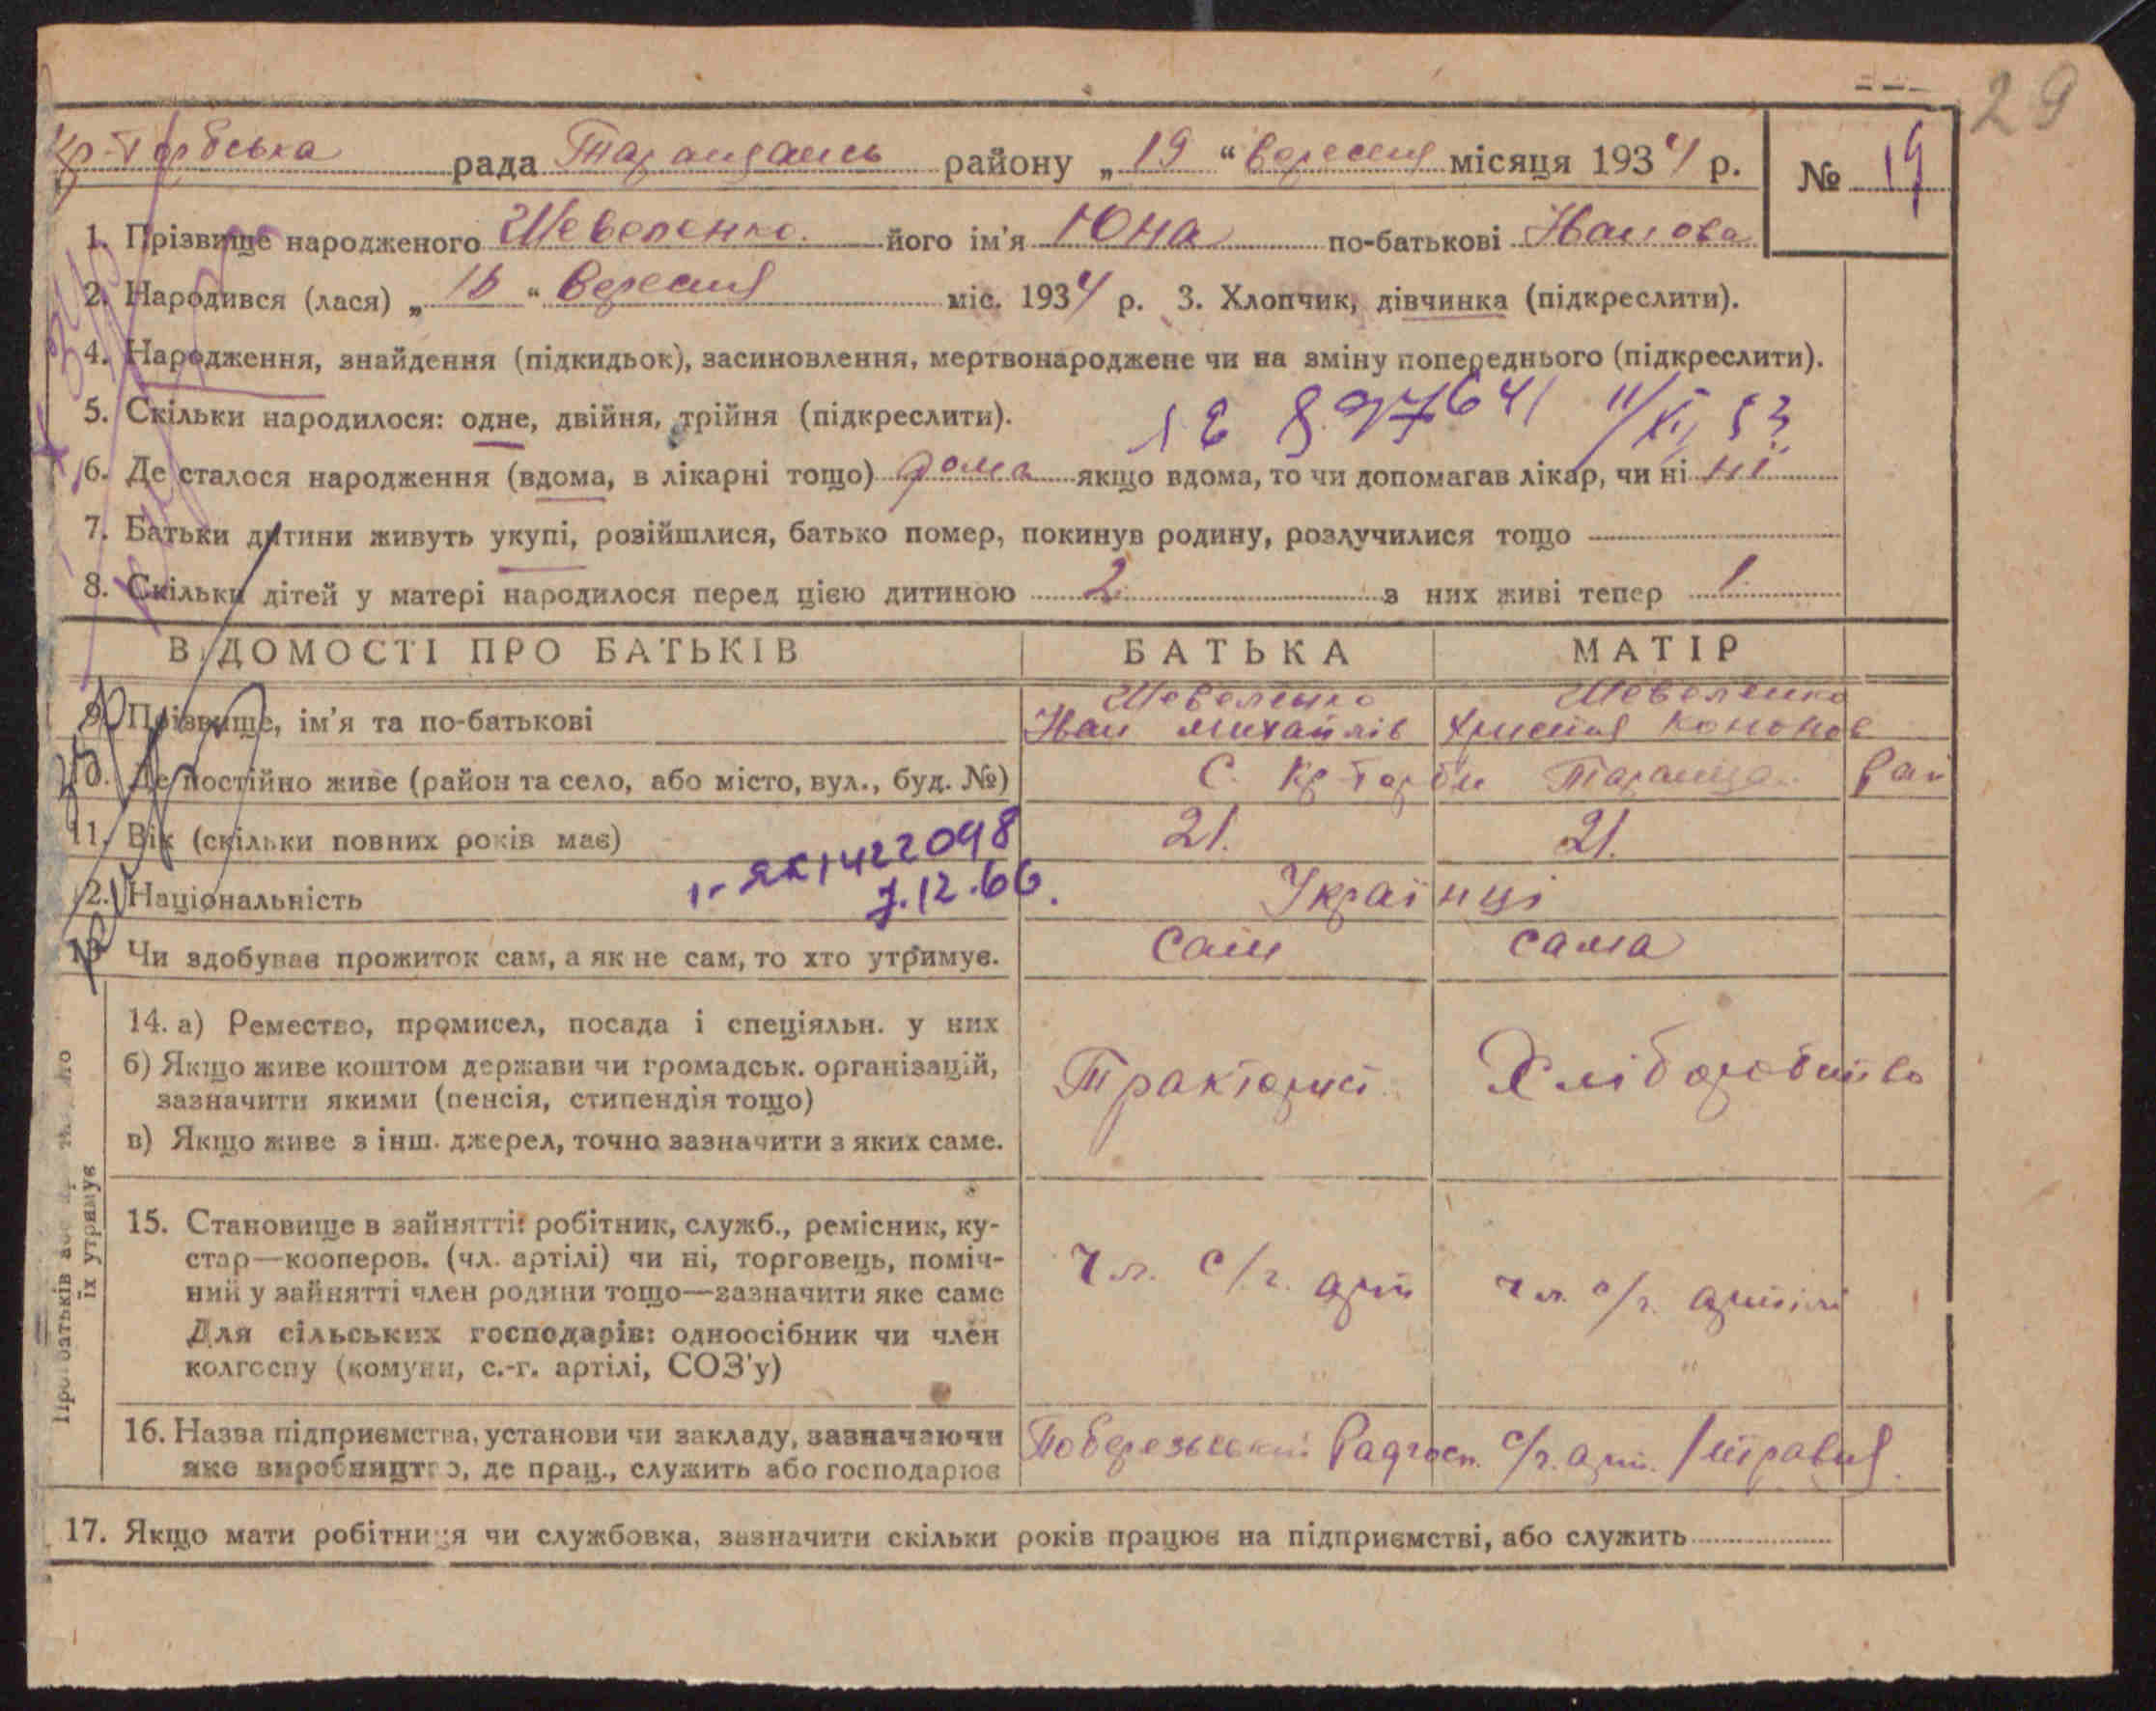 29
Кр-Торбська рада Таращансь району „19“ вересня місяця 1934 р. № 19
1. Прізвище народженого Шевеленко його ім'я Юна по-батькові Іванова
2. Народився (лася) „ “ вересня міс. 1934 р. 3. Хлопчик, дівчинка (підкреслити).
4. Народження, знайдення (підкидьок), засиновлення, мертвонароджене чи на зміну попереднього (підкреслити).
5. Скільки народилося: одне, двійня, трійня (підкреслити).
11/XI 53
6. Де сталося народження (вдома, в лікарні тощо) дома якщо вдома, то чи допомагав лікар, чи ні ні
7. Батьки дитини живуть укупі, розійшлися, батько помер, покинув родину, розлучилися тощо
8. Скільки дітей у матері народилося перед цією дитиною 2 з них живі тепер 1.
ВІДОМОСТІ ПРО БАТЬКІВ БАТЬКА МАТІР
9. Прізвище, ім'я та по-батькові Шевеленко Іван Михайлів Шевеленко Христия Кононов
10. Де постійно живе (район та село, або місто, вул., буд. №) С. Кр-Торби Таращан. рай
11. Вік (скільки повних років має) 21. 21.
1-ЯК 1422098
7.12.66.
12. Національність Українці
13. Чи здобуває прожиток сам, а як не сам, то хто утримує. сам сама
14. а) Ремество, промисел, посада і спеціяльн. у них
б) Якщо живе коштом держави чи громадськ. організацій,
зазначити якими (пенсія, стипендія тощо)
в) Якщо живе з інш. джерел, точно зазначити з яких саме.
Тракторист Хліборобство
15. Становище в зайнятті: робітник, служб., ремісник, ку-
стар—кооперов. (чл. артілі) чи ні, торговець, поміч-
ний у зайнятті член родини тощо—зазначити яке саме
Для сільських господарів: одноосібник чи член
колгоспу (комуни, с.-г. артілі, СОЗ'у)
Чл. с/г. арт чл. с/г. артілі
16. Назва підприємства, установи чи закладу, зазначаючи
яке виробництво, де прац., служить або господарює
Поберезьський Радгосп. с/г. арт. 1 травня.
17. Якщо мати робітниця чи службовка, зазначити скільки років працює на підприємстві, або служить
їх утримує